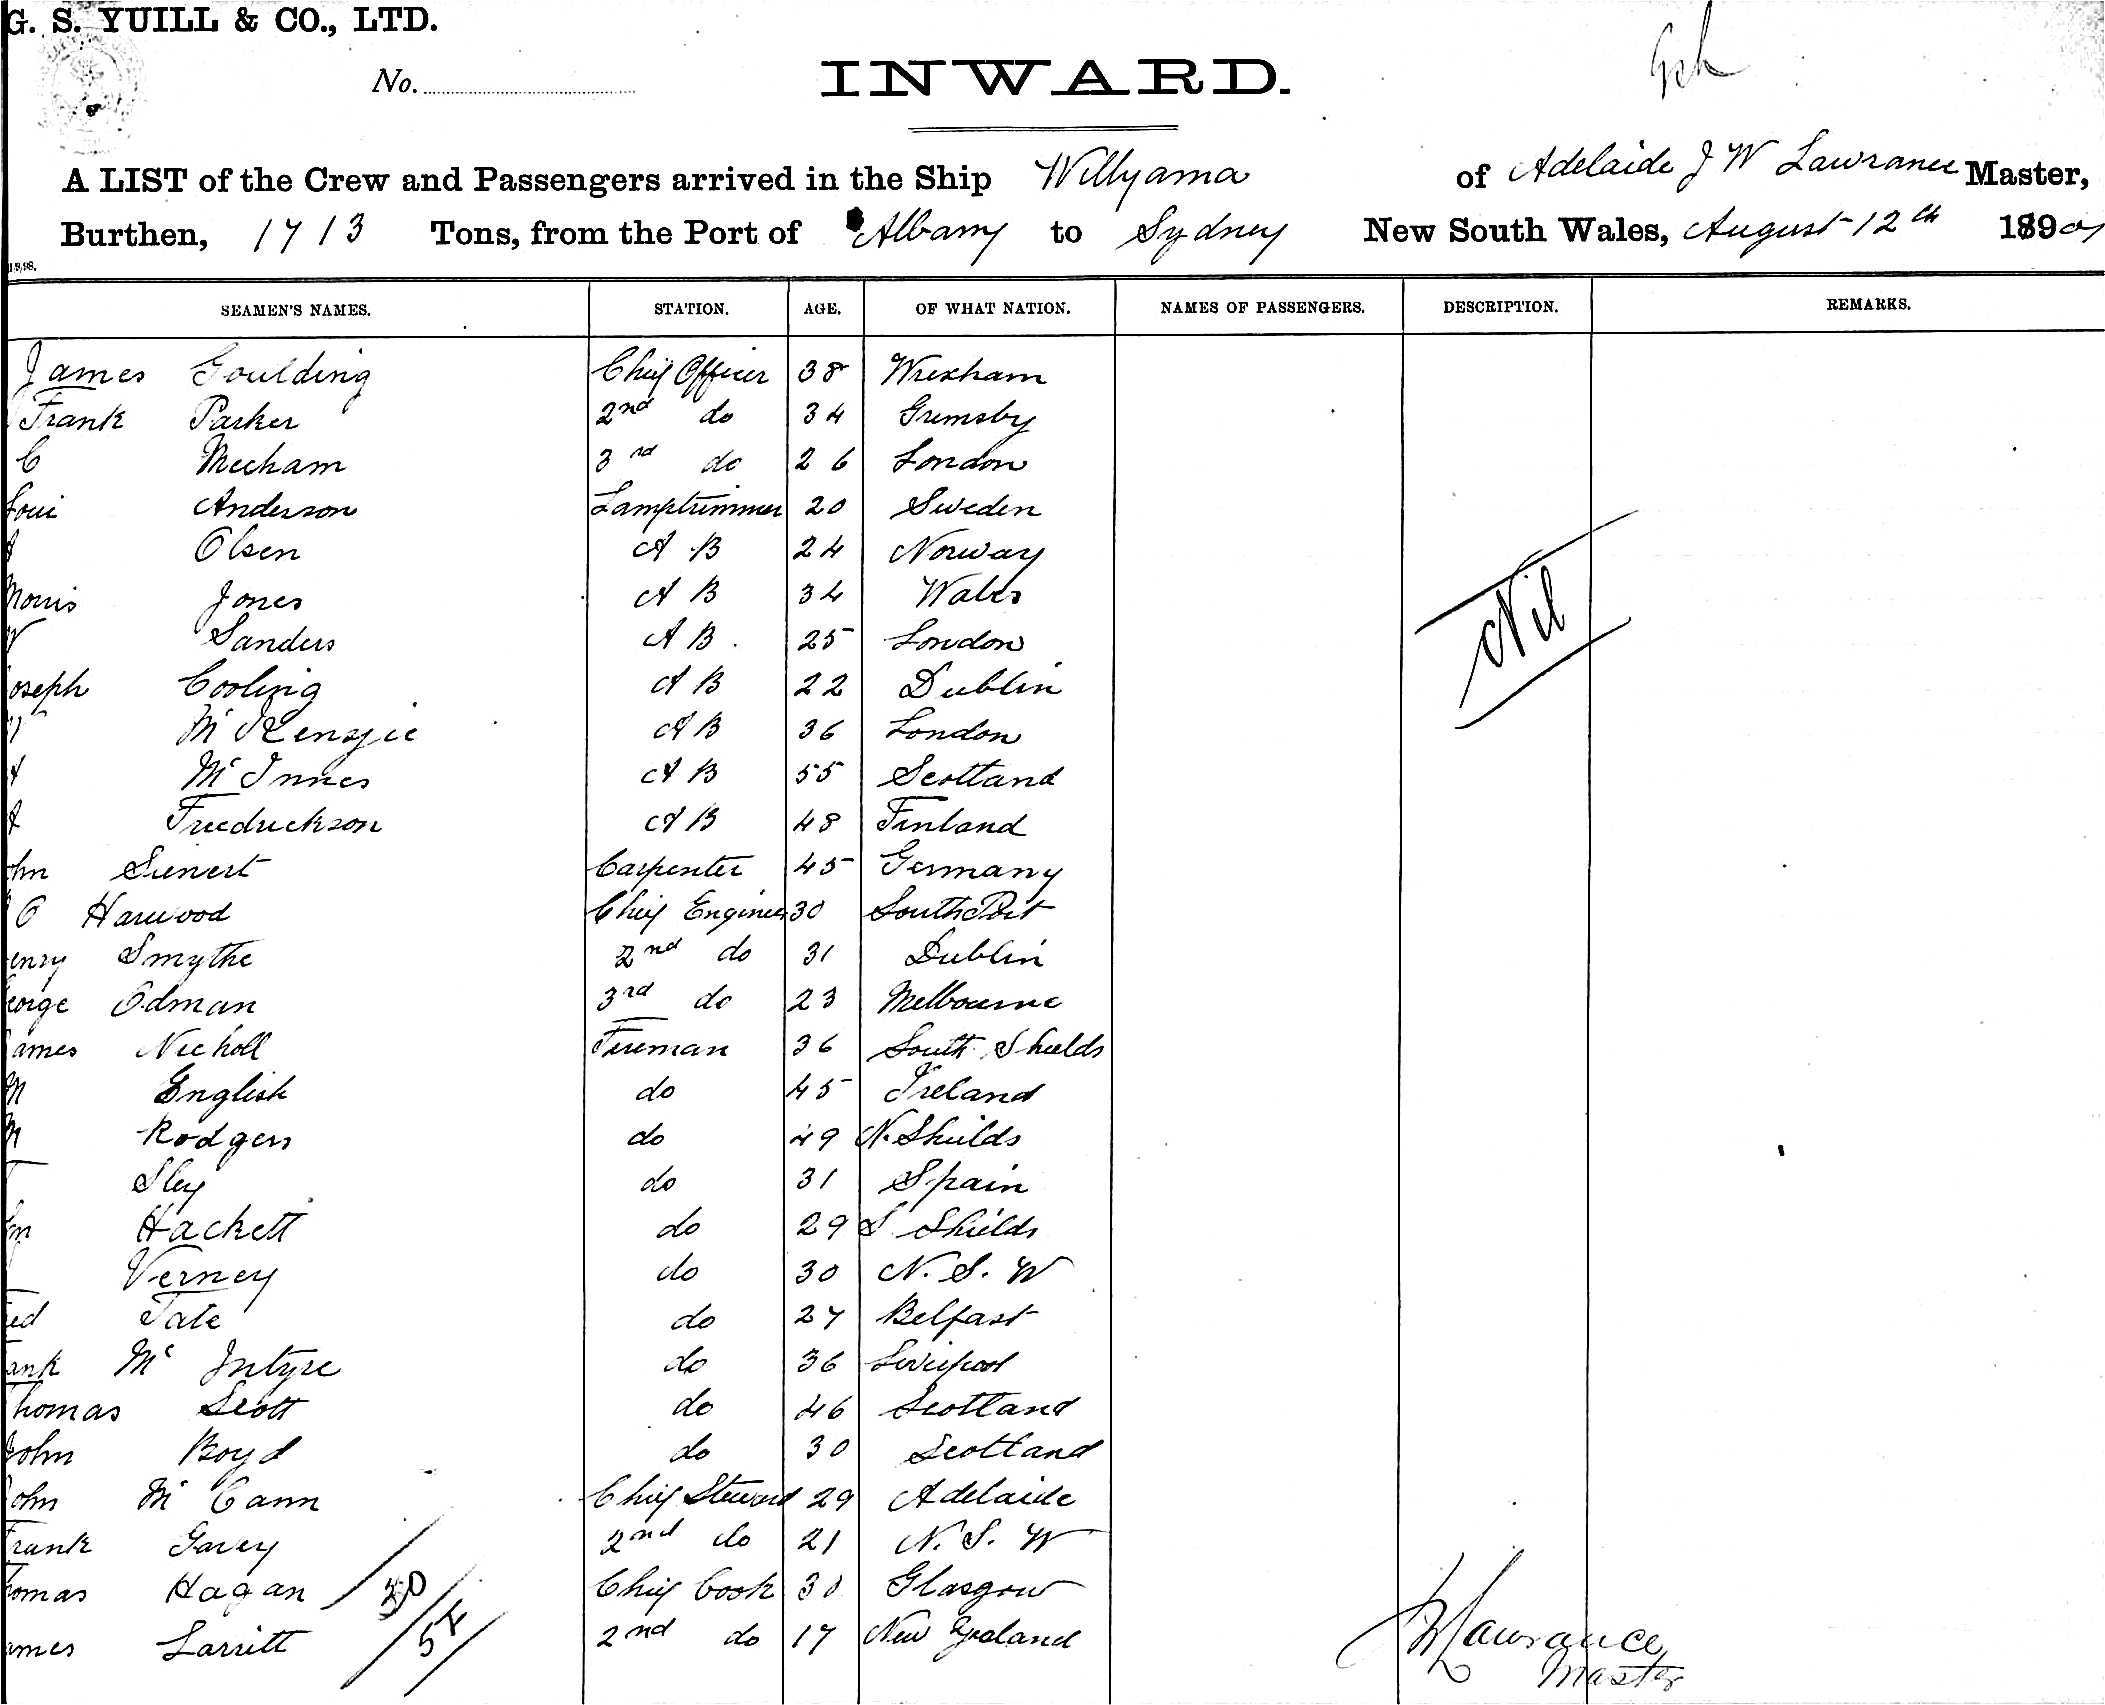 G. S. YUILL & CO., LTD.
No.
INWARD.
A LIST of the Crew and Passengers arrived in the Ship Willyama of Adelaide J W Lawrance Master,
Burthen, 1713 Tons, from the Port of Albany to Sydney New South Wales, August 12th 1890
SEAMEN'S NAMES. STATION. AGE. OF WHAT NATION. NAMES OF PASSENGERS. DESCRIPTION. REMARKS.
James Goulding Chief Officer 38 Wrexham
Frank Parker 2nd do 34 Grimsby
C Mecham 3rd do 26 London
Loui Anderson Lamptrimmer 20 Sweden
Olsen A B 24 Norway
Morris Jones A B 34 Wales
W Sanders A B 25 London
oseph Cooling A B 22 Dublin
Mc Kenzie A B 36 London
Mc Innes A B 55 Scotland
Friedrickson A B 48 Finland
ohn Sienert Carpenter 45 Germany
O Harwood Chief Engineer 30 South Port
enry Smythe 2nd do 31 Dublin
eorge Odman 3rd do 23 Melbourne
ames Nicholl Fireman 36 South Shields
M English do 45 Ireland
M Rodgers do 49 N. Shields
Sley do 31 Spain
Hackett do 29 S Shields
Verney do 30 N. S. W
ed Tate do 27 Belfast
ank Mc Intyre do 36 Liverpool
homas Scott do 46 Scotland
John Boyd do 30 Scotland
John Mc Cann Chief Steward 29 Adelaide
Frank Garey 2nd do 21 N. S. W
omas Hagan Chief Cook 30 Glasgow
ames Larritt 2nd do 17 New Zealand
Nil
30
54
J W Lawrance
Master